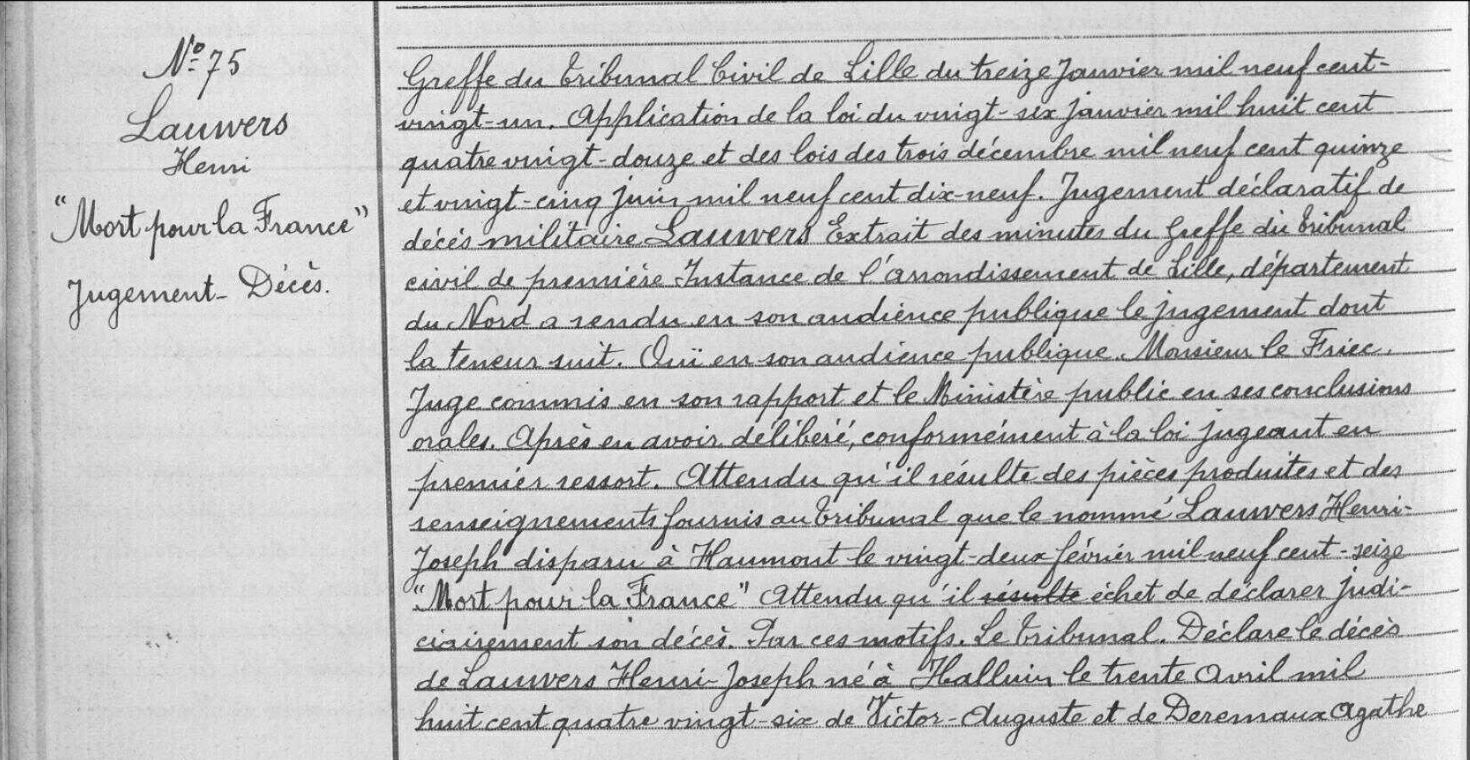 N° 75
Lauwers
Henri
"Mort pour la France"
Jugement - Décès.
Greffe du Tribunal Civil de Lille du treize Janvier mil neuf cent-
vingt-un. Application de la loi du vingt-six janvier mil huit cent
quatre vingt-douze et des lois des trois décembre mil neuf cent quinze
et vingt-cinq juin mil neuf cent dix-neuf. Jugement déclaratif de
décès militaire Lauwers Extrait des minutes du Greffe du Tribunal
civil de première Instance de l'arrondissement de Lille, département
du Nord a rendu en son audience publique le jugement dont
la teneur suit. Ouï en son audience publique. Monsieur le Friec.
Juge commis en son rapport et le Ministère public en ses conclusions
orales. Après en avoir délibéré, conformément à la loi jugeant en
premier ressort. Attendu qu'il résulte des pièces produites et des
renseignements fournis au Tribunal que le nommé Lauwers Henri-
Joseph disparu à Haumont le vingt-deux février mil neuf cent-seize
"Mort pour la France" Attendu qu'il résulte échet de déclarer judi-
ciairement son décès. Par ces motifs. Le Tribunal. Déclare le décès
de Lauwers Henri-Joseph né à Halluin le trente Avril mil
huit cent quatre vingt-six de Victor-Auguste et de Deremaux Agathe